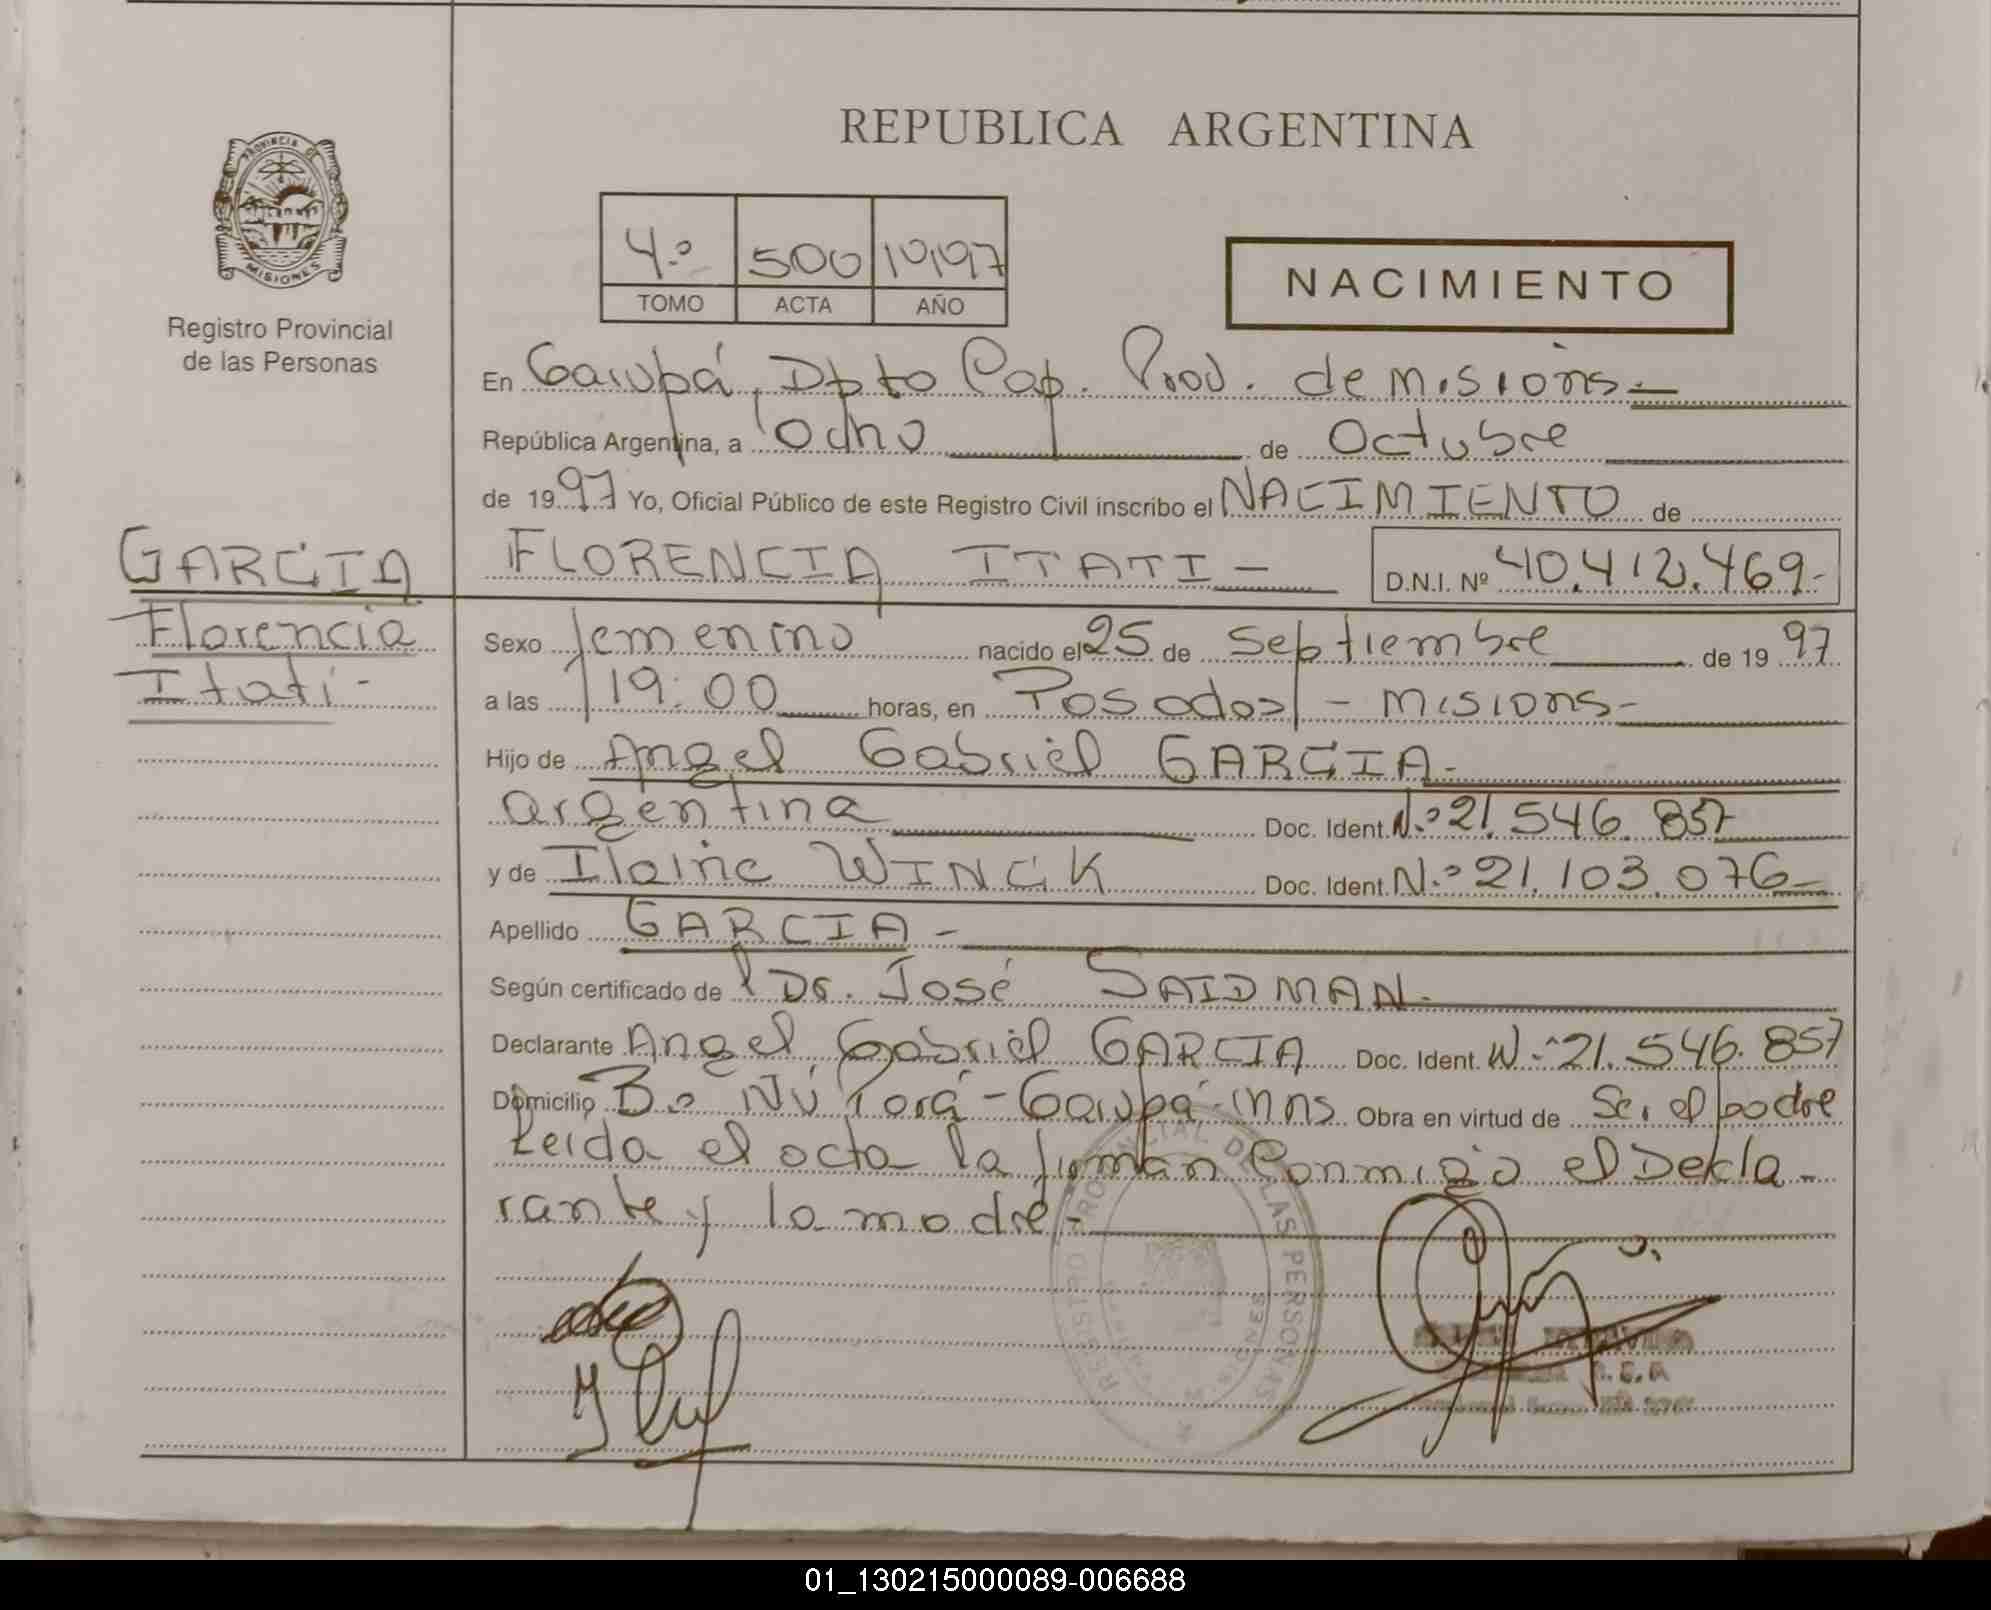 REPUBLICA ARGENTINA
PROVINCIA DE
MISIONES
Registro Provincial
de las Personas
4.º 500 1997
TOMO ACTA AÑO
NACIMIENTO
En Garupá, Dpto Cap. Prov. de Misions.-
República Argentina, a Ocho de Octubre
de 1997 Yo, Oficial Público de este Registro Civil inscribo el NACIMIENTO de
GARCIA
Florencia
Itati-
FLORENCIA ITATI- D.N.I. Nº 40.412.469-
Sexo femenino nacido el 25 de Septiembre de 1997
a las 19:00 horas, en Posadas - Misions-
Hijo de Angel Gabriel GARCIA-
argentina Doc. Ident. N.º 21.546.857
y de Ilaine WINCK Doc. Ident. N.º 21.103.076-
Apellido GARCIA-
Según certificado de Dr. José SAIDMAN.
Declarante Angel Gabriel GARCIA Doc. Ident. N.º 21.546.857
Domicilio Bº Ñú Porá - Garupá - Mns Obra en virtud de Ser el padre
Leida el acta la firman Conmigo el Decla-
rante y la madre-
REGISTRO PROVINCIAL DE LAS PERSONAS
MISIONES
01_130215000089-006688